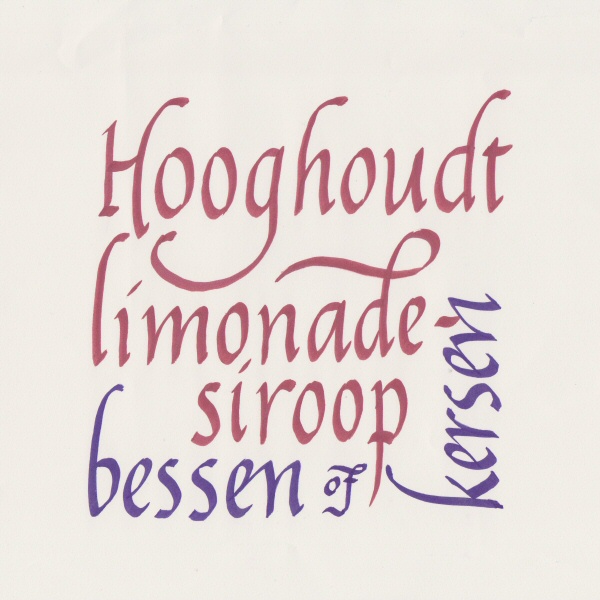 Hooghoudt
limonade-
siroop
bessen of
kersen